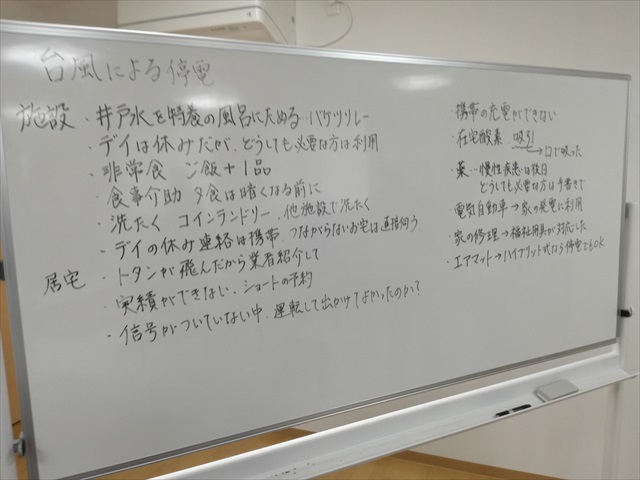 台風による停電
施設 ・井戸水を特養の風呂にためる…バケツリレー
・デイは休みだが、どうしても必要な方は利用
・非常食 ご飯+1品
・食事介助 夕食は暗くなる前に
・洗たく コインランドリー、他施設で洗たく
・デイの休み連絡は携帯、つながらないお宅は直接伺う
居宅 ・トタンが飛んだから業者紹介して
・実績ができない、ショートの予約
・信号がついていない中、運転して出かけてよかったのか?
・携帯の充電ができない
・在宅酸素 吸引
→口で吸った
・薬…慢性疾患は後日
どうしても必要な方は手書きで
・電気自動車→家の発電に利用
・家の修理→福祉用具が対応した
・エアマット→ハイブリット式なら停電でもOK